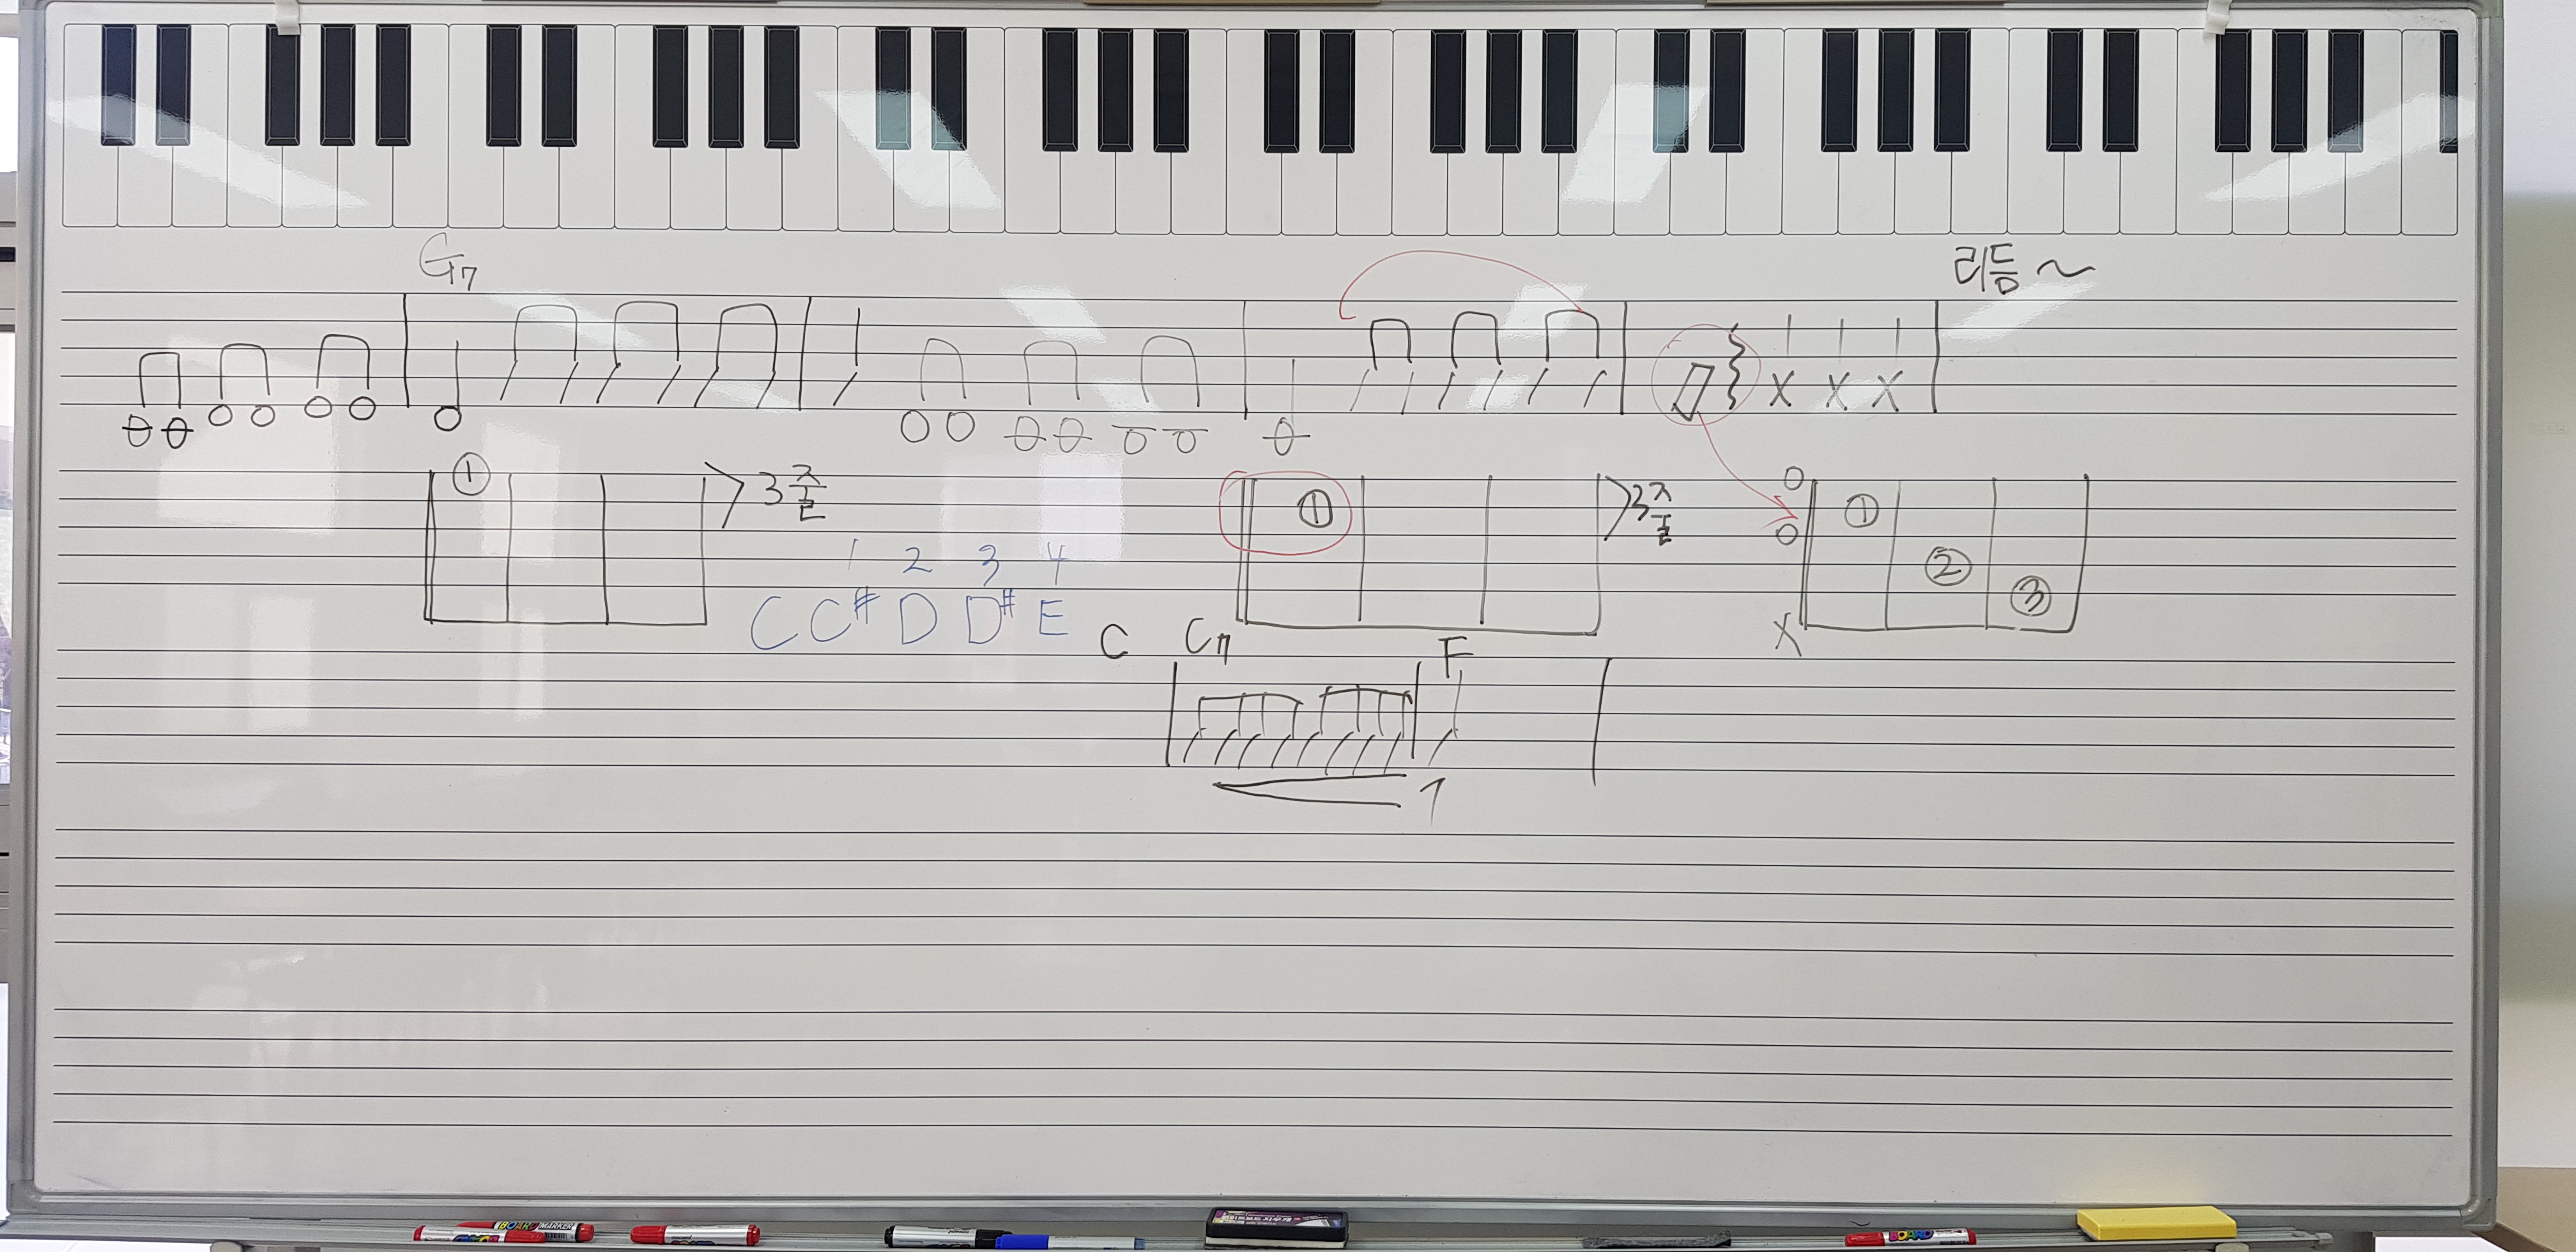 G7
리듬~
①
>3줄
①
>3줄
O
O
X
①
②
③
1 2 3 4
C C# D D# E
C C7 F
1
BOARD MARKER
BOARD